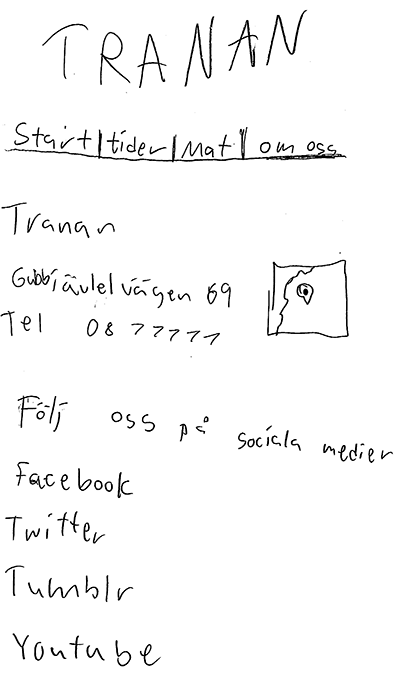 TRANAN
Start|tider|Mat|om oss
Tranan
Gubbjävlel vägen 69
Tel 08 77777
Följ oss på sociala medier
Facebook
Twitter
Tumblr
Youtube